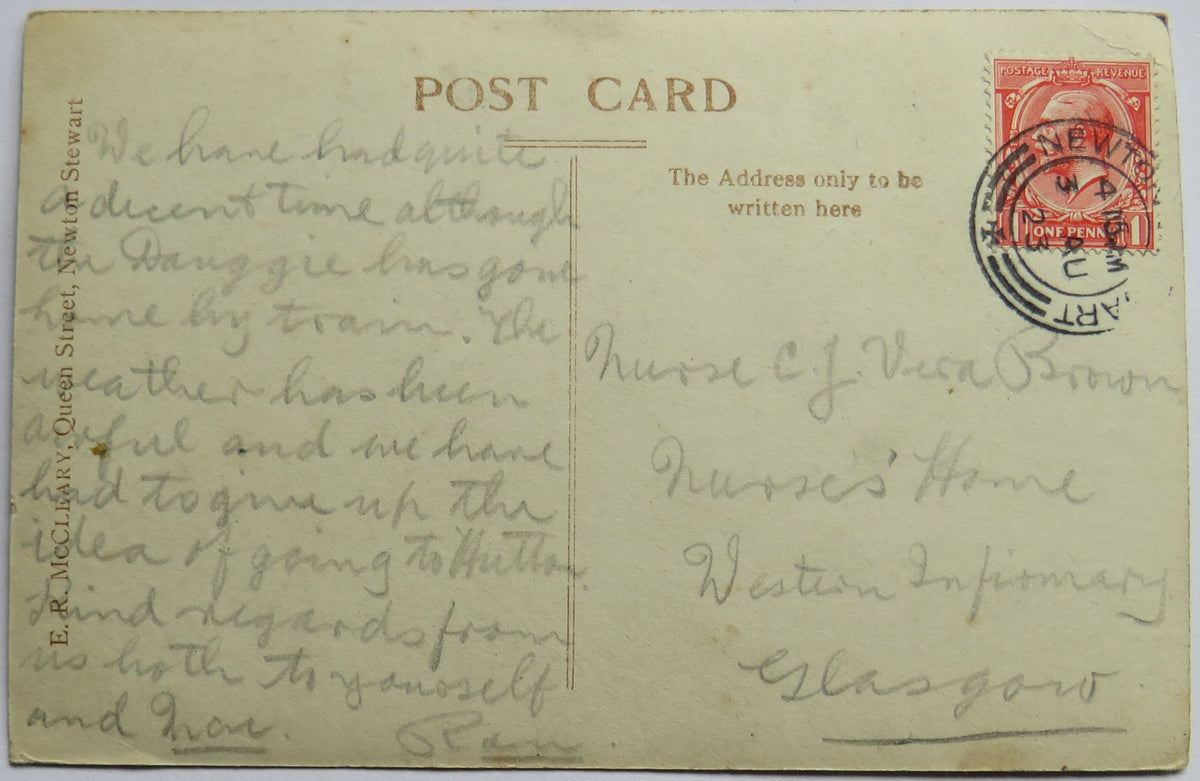 POST CARD
The Address only to be
written here
E. R. McCLEARY, Queen Street, Newton Stewart
POSTAGE REVENUE
ONE PENNY
1 1
NEWTON
ART
4 15 AM
3 AU
23
We have had quite
a decent time although
the Dauggie has gone
home by train. The
weather has been
awful and we have
had to give up the
idea of going to Hutton.
Kind regards from
us both to yourself
and
Nurse C. J. Vera Brown
Nurse's Home
Western Infirmary
Glasgow